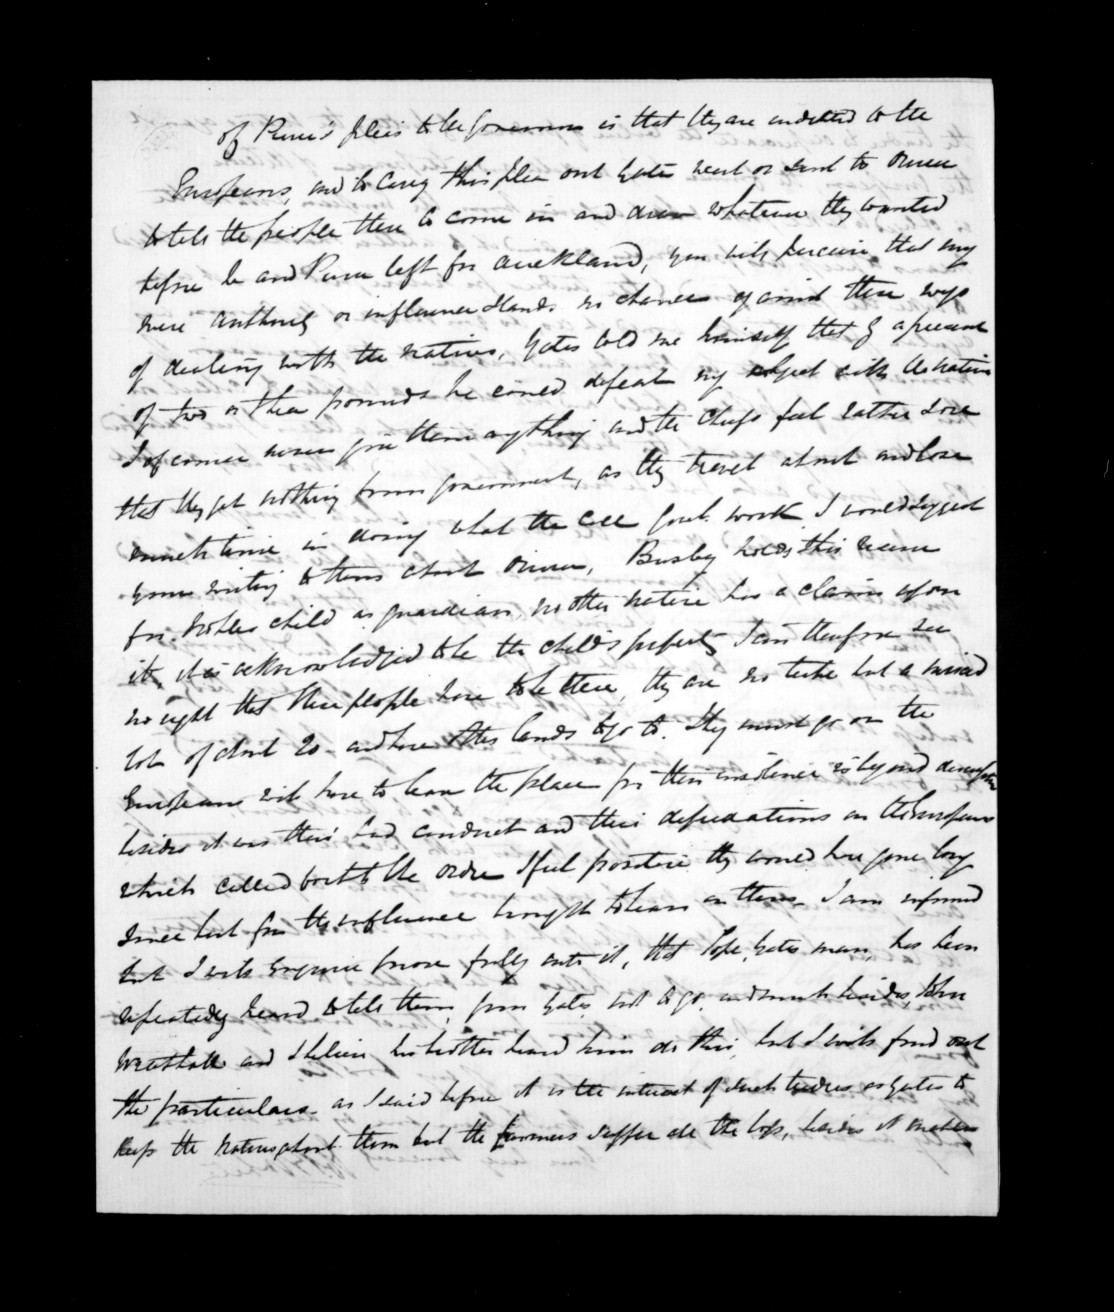 of Puru's pleis to the Governor is that they are indebted to the
Europeans, and to carry this plea out Yates went or sent to Oruru
to tell the people there to come in and draw whatever they wanted
before he and Puru left for Auckland, you will perceive that my
mere authority or influence stands no chance against these ways
of dealing with the natives, Yates told me himself that by a present
of two or three pounds he could defeat my object with the natives
I of course never give them anything and the chiefs feel rather sore
that they get nothing from government, as they travel about and lose
much time in doing what the call Govt. work I would suggest
your writing to them about Oruru, Busby holds this
for child as guardian, no other native has a claim upon
it, it is acknowledged to be the child's property I can therefore see
no right that these people have to be there, they are no tribe but a mixed
lot of about 20 and have other lands to go to. they must go or the
Europeans will have to leave the place for their insolence is beyond description
besides it was their bad conduct and their depredations on the Europeans
which called forth the order I feel positive they would have gone long
since but for the influence brought to bear on them I am informed
but I will enquire more fully into it, that Pope, Yates man, has been
repeatedly heard to tell them, from Yates not to go. and much besides, John
and I believe his brother heard him do this, but I will find out
the particulars as I said before it is the interest of such traders as Yates to
keep the natives about them but the farmers suffer all the loss, besides it makes